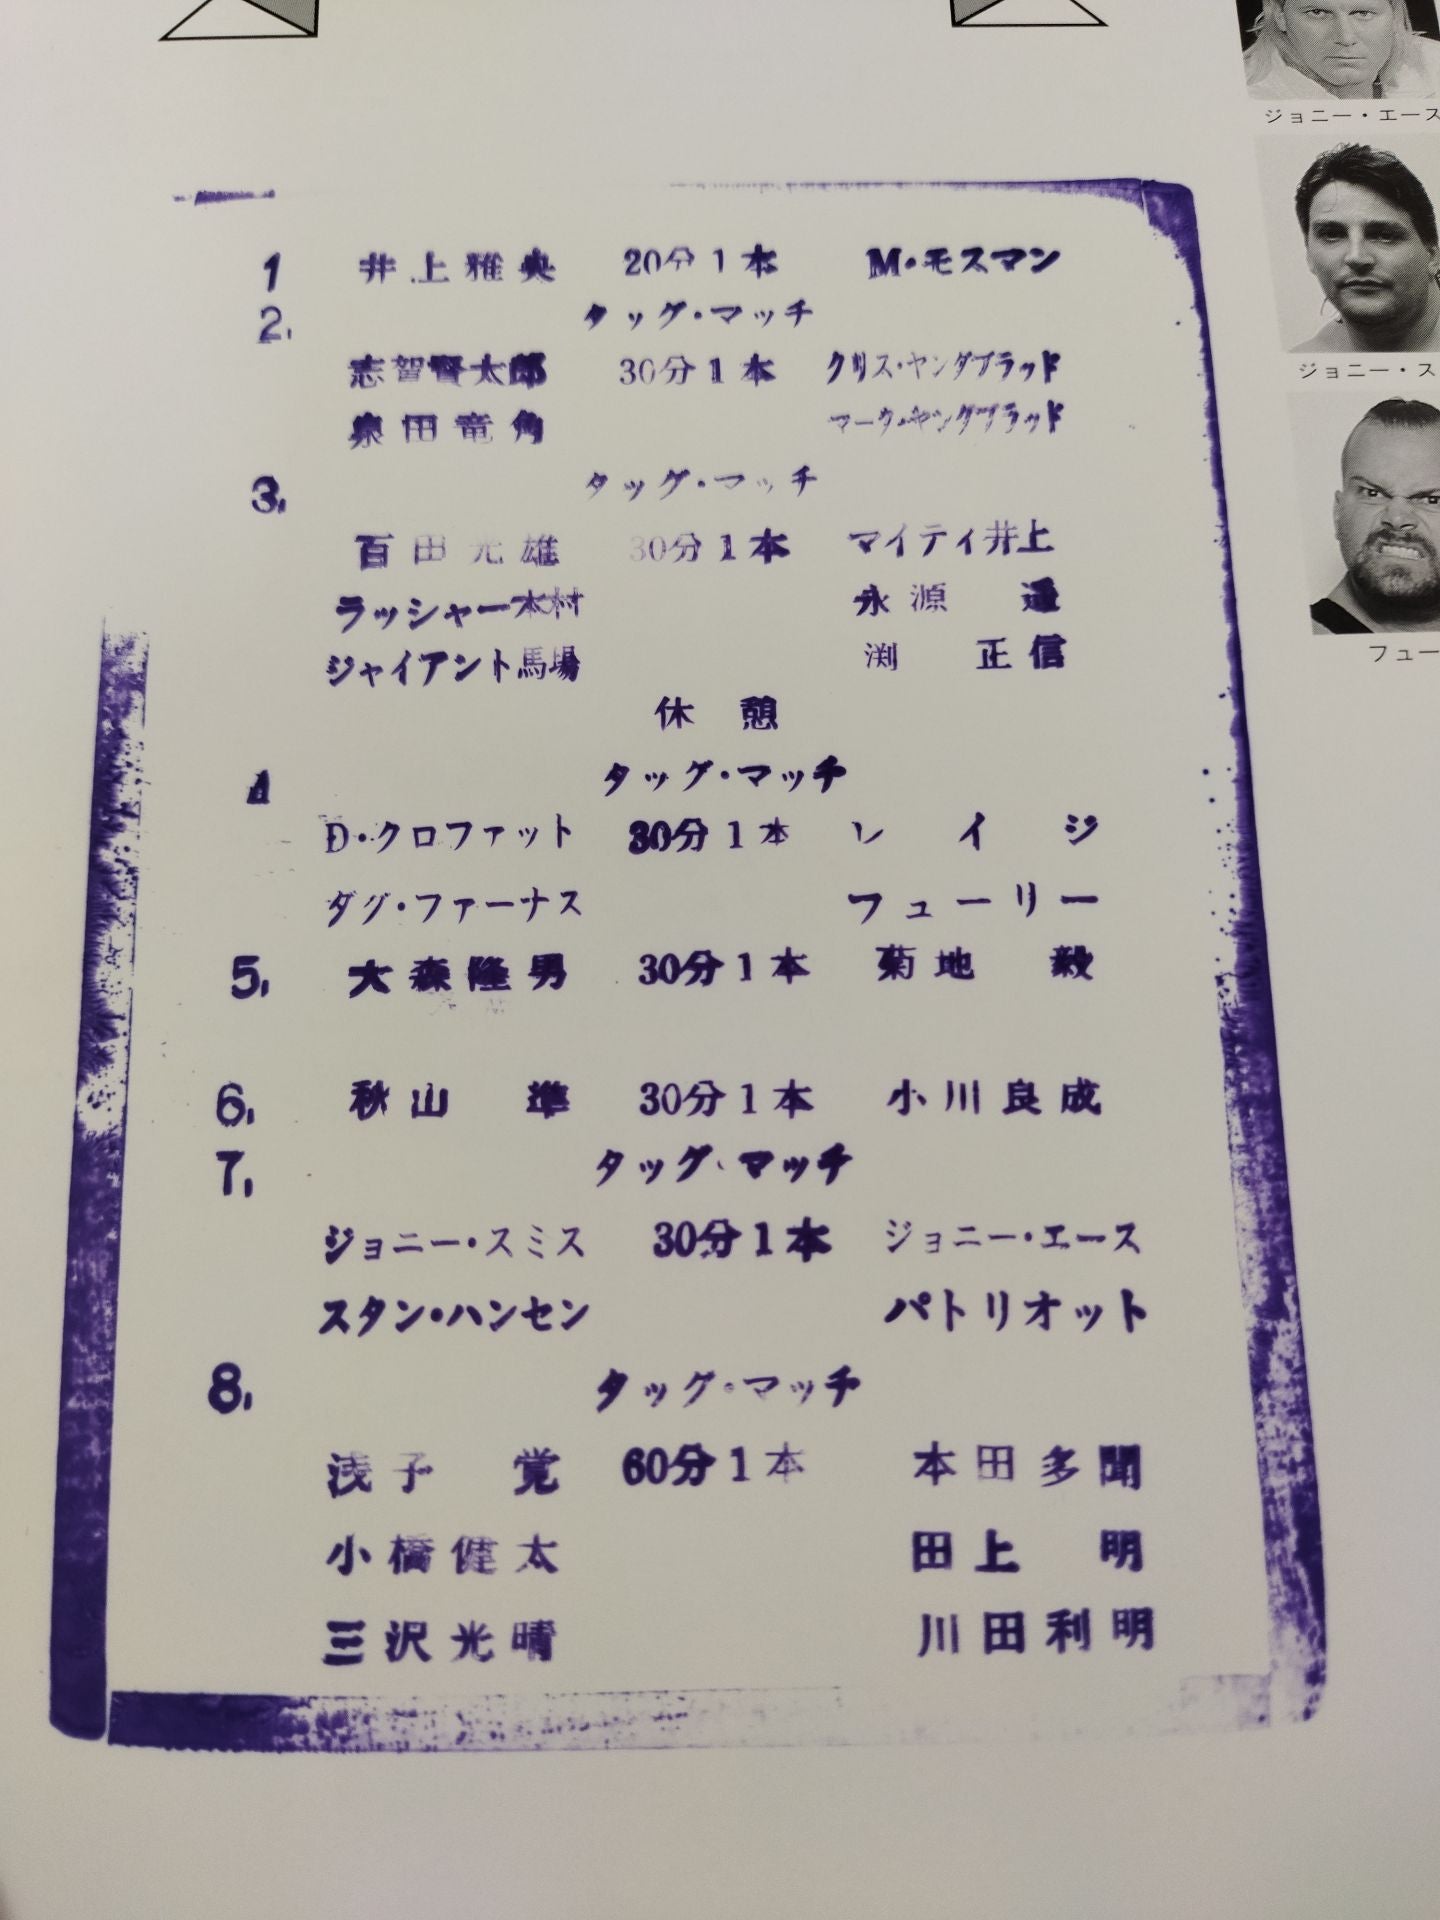 1 井上雅央 20分1本 M・モスマン
2. タッグ・マッチ
志賀賢太郎 30分1本 クリス・ヤングブラッド
泉田竜角 マーク・ヤングブラッド
3. タッグ・マッチ
百田光雄 30分1本 マイティ井上
ラッシャー木村 永源 遥
ジャイアント馬場 渕 正信
休憩
4 タッグ・マッチ
D・クロファット 30分1本 レイジ
ダグ・ファーナス フューリー
5. 大森隆男 30分1本 菊地 毅
6. 秋山 準 30分1本 小川良成
7. タッグ・マッチ
ジョニー・スミス 30分1本 ジョニー・エース
スタン・ハンセン パトリオット
8. タッグ・マッチ
浅子 覚 60分1本 本田多聞
小橋健太 田上 明
三沢光晴 川田利明
ジョニー・エース
ジョニー・ス
フュー